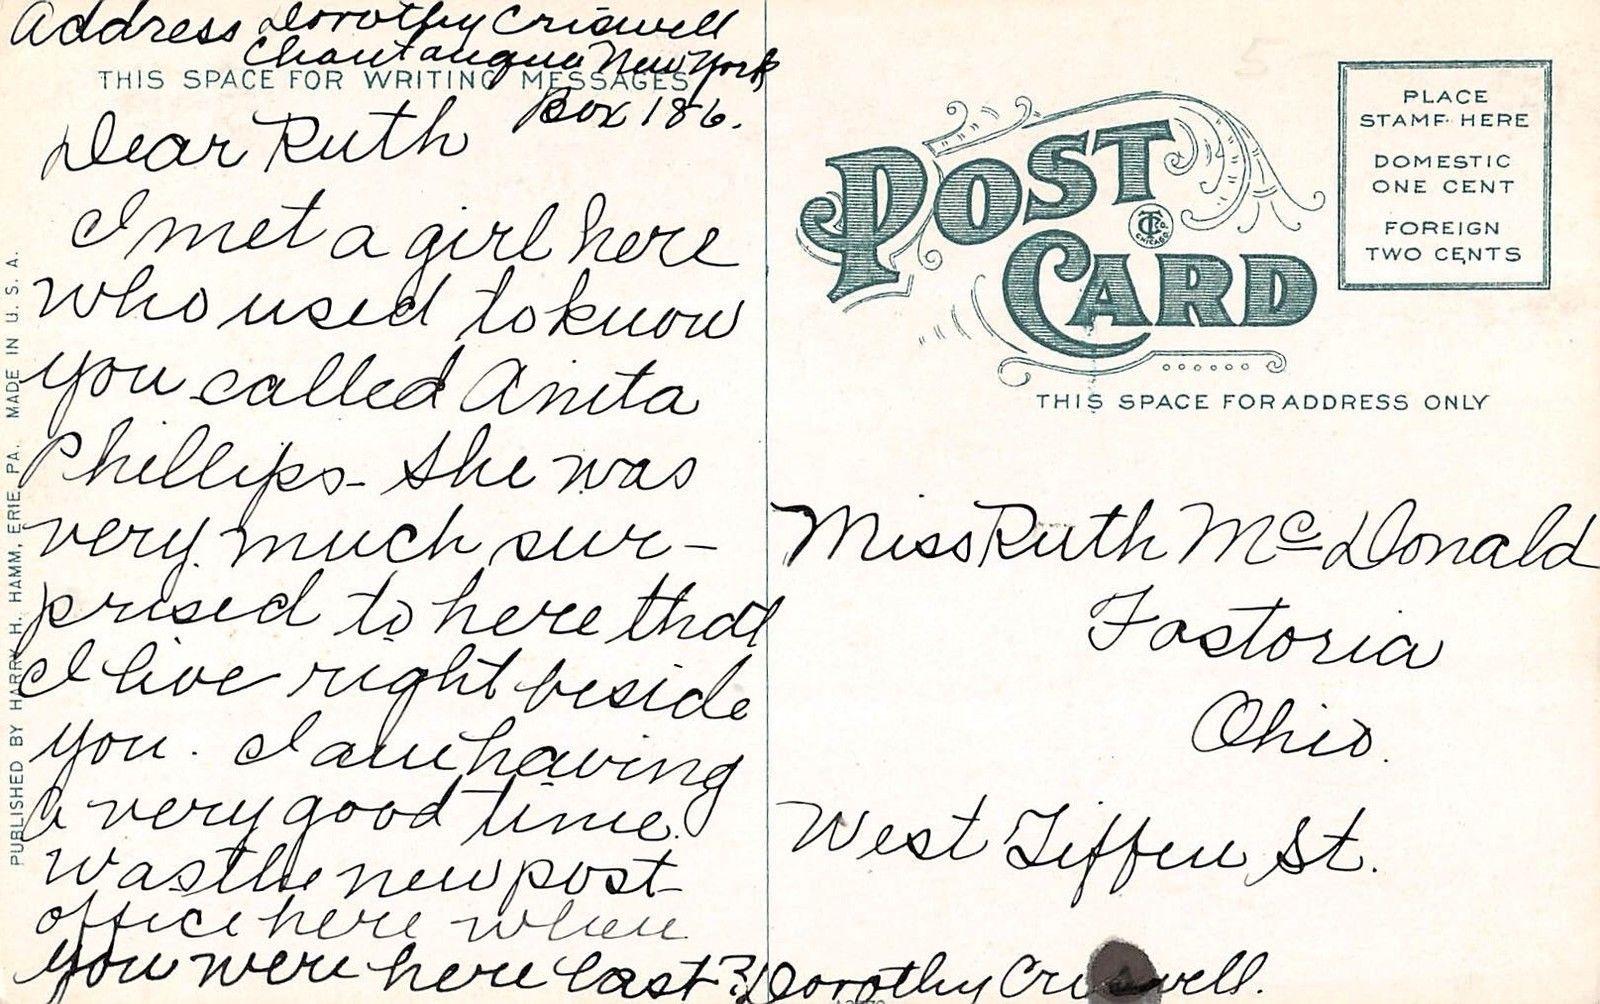 Address Dorothy Criswell
Chautauqua New York
Box 186.
THIS SPACE FOR WRITING MESSAGES
Dear Ruth
I met a girl here
who used to know
you called Anita
Phillips- She was
very much sur-
prised to here that
I live right beside
you. I am having
a very good time.
Was the new post
office here when
you were here last? Dorothy Criswell.
PUBLISHED BY HARRY H. HAMM, ERIE, PA. MADE IN U. S. A.
POST
CARD
CTCo.
CHICAGO
THIS SPACE FOR ADDRESS ONLY
PLACE
STAMP HERE
DOMESTIC
ONE CENT
FOREIGN
TWO CENTS
Miss Ruth McDonald
Fostoria
Ohio.
West Tiffen St.